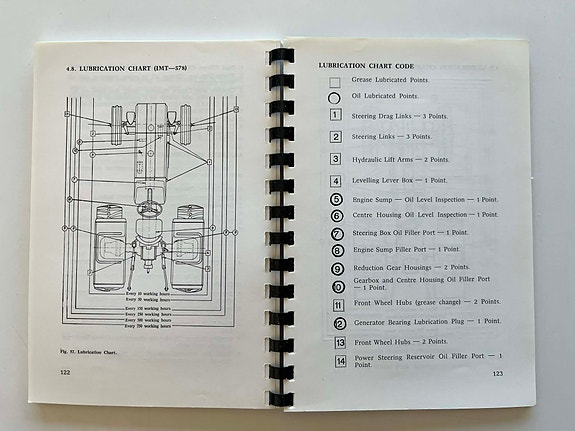 4.8. LUBRICATION CHART (IMT—578)
Every 10 working hours
Every 50 working hours
Every 250 working hours
Fig. 57. Lubrication Chart.
122
LUBRICATION CHART CODE
Grease Lubricated Points.
Oil Lubricated Points.
1 Steering Drag Links — 3 Points.
2 Steering Links — 3 Points.
3 Hydraulic Lift Arms — 2 Points.
4 Levelling Lever Box — 1 Point.
5 Engine Sump — Oil Level Inspection — 1 Point.
6 Centre Housing Oil Level Inspection — 1 Point.
7 Steering Box Oil Filler Port — 1 Point.
8 Engine Sump Filler Port — 1 Point.
9 Reduction Gear Housings — 2 Points.
10 Gearbox and Centre Housing Oil Filler Port
— 1 Point.
11 Front Wheel Hubs (grease change) — 2 Points.
12 Generator Bearing Lubrication Plug — 1 Point.
13 Front Wheel Hubs — 2 Points.
14 Power Steering Reservoir Oil Filler Port — 1
Point.
123